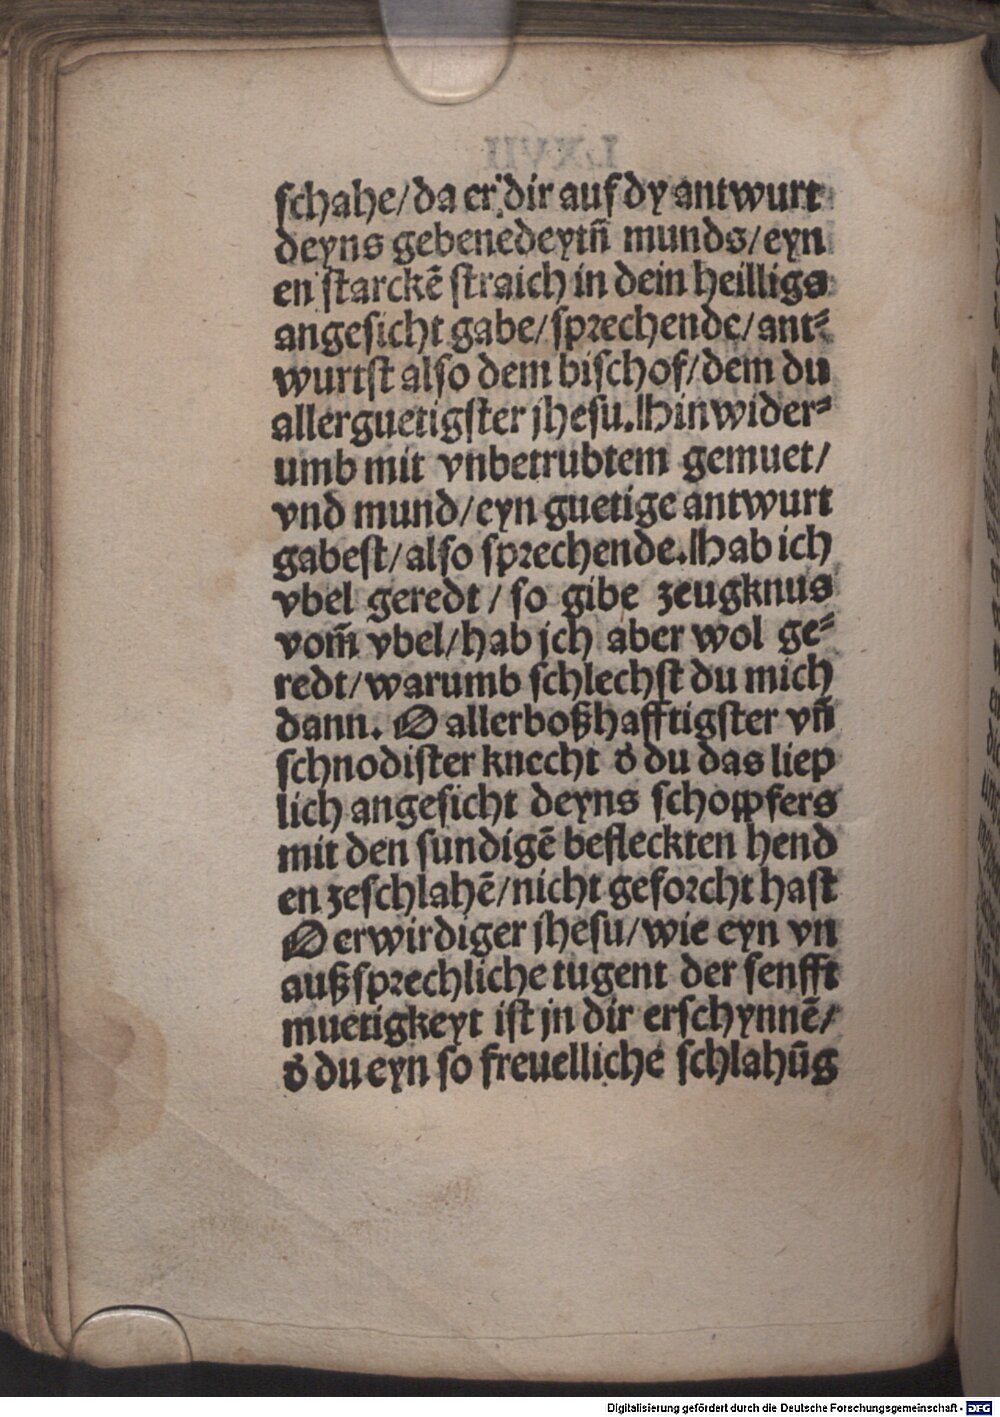 schahe/da er dir auf dy antwurt
deyns gebenedeytn̄ munds/eyn
en starckē straich in dein heilligs
angesicht gabe/sprechende/ant⸗
wurtst also dem bischof/dem du
allerguetigster jhesu. Hinwider⸗
umb mit vnbetrubtem gemuet/
vnd mund/eyn guetige antwurt
gabest/also sprechende. Hab ich
vbel geredt/so gibe zeugknus
vom̄ vbel/hab jch aber wol ge⸗
redt/warumb schlechst du mich
dann. O allerboßhafftigster vn̄
schnodister knecht d̕ du das liep
lich angesicht deyns schoppfers
mit den sundigē befleckten hend
en zeschlahē/nicht geforcht hast
O erwirdiger jhesu/wie eyn vn
außsprechliche tugent der senfft
muetigkeyt ist jn dir erschynnē/
d̕ du eyn so freuelliche schlahūg
Digitalisierung gefördert durch die Deutsche Forschungsgemeinschaft - DFG